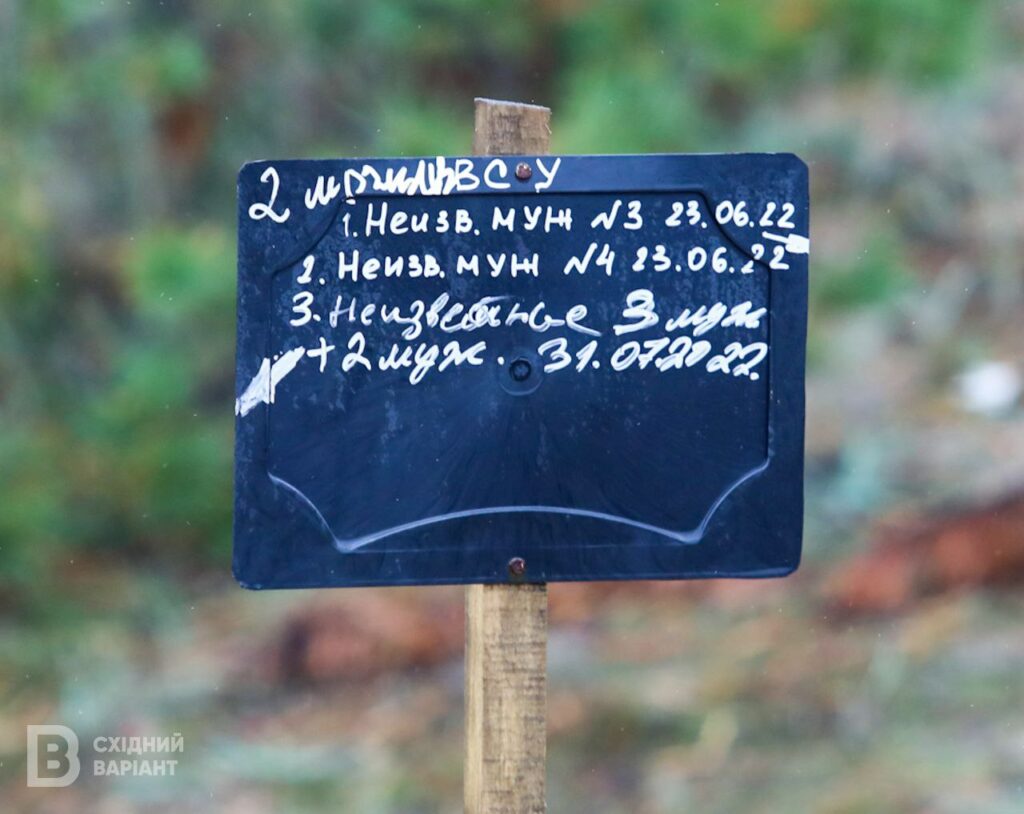 2 могилы ВСУ
1. Неизв. муж №3 23.06.22
2. Неизв. муж №4 23.06.22
3. Неизвестные 3 муж
+ 2 муж. 31.07.2022.
В СХІДНИЙ
ВАРІАНТ